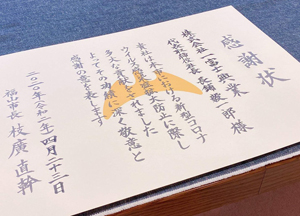 感謝状
株式会社一宮工興業
代表取締役社長 長舗敬一郎 様
貴社は本市における新型コロナ
ウイルス感染症拡大防止に際し
多大な貢献をされました
よってその功績に深く敬意と
感謝の意を表します
二〇二〇年(令和二年)四月二十三日
福山市長 枝廣直幹